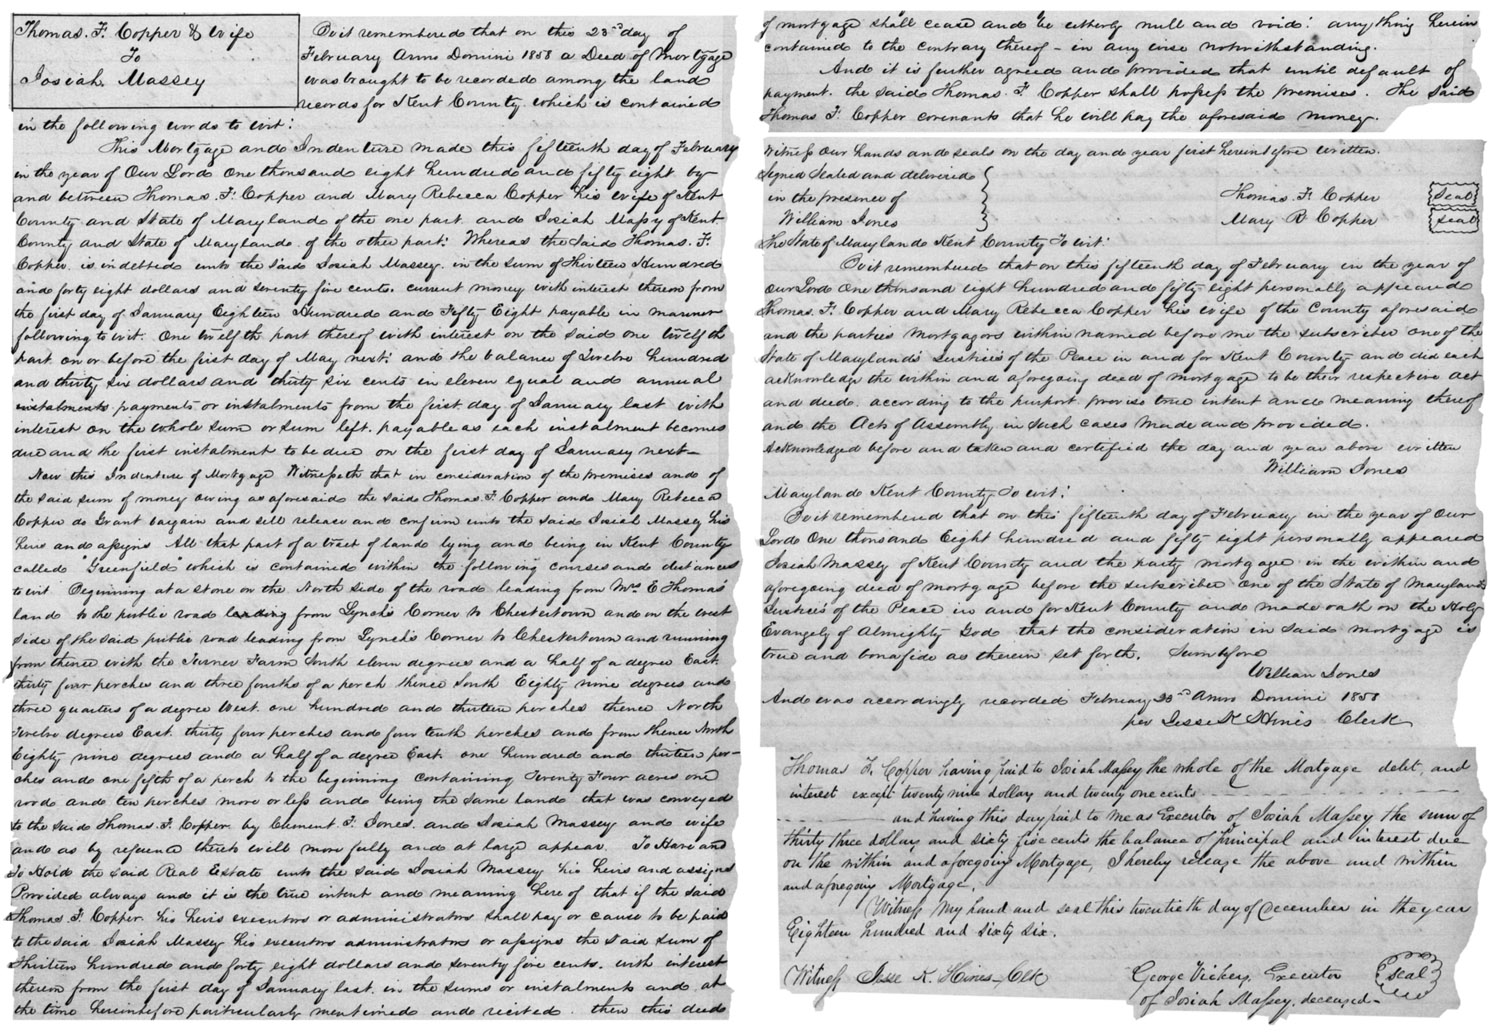 Thomas. F. Copper & Wife
To
Josiah Massey
Be it remembered that on this 23rd day of
February Anno Domini 1858 a Deed of Mortgage
was brought to be recorded among the land
records for Kent County which is contained
in the following words to wit:
This Mortgage and Indenture made this fifteenth day of February
in the year of Our Lord One thousand eight hundred and fifty eight by
and between Thomas. F. Copper and Mary Rebecca Copper his wife of Kent
County and State of Maryland of the one part and Josiah Massey of Kent
County and State of Maryland of the other part: Whereas the said Thomas. F.
Copper is indebted unto the said Josiah Massey in the sum of Thirteen Hundred
and forty eight dollars and seventy five cents. current money with interest thereon from
the first day of January Eighteen Hundred and Fifty Eight payable in manner
following to wit. One twelfth part thereof with interest on the said one twelfth
part on or before the first day of May next: and the balance of Twelve hundred
and thirty six dollars and thirty six cents in eleven equal and annual
instalments payments or instalments from the first day of January last with
interest on the whole sum or sum left payable as each instalment becomes
due and the first instalment to be due on the first day of January next—
Now this Indenture of Mortgage Witnesseth that in consideration of the premises and of
the said sum of money owing as aforesaid the said Thomas. F. Copper and Mary Rebecca
Copper do Grant bargain and sell release and confirm unto the said Josiah Massey his
heirs and assigns All that part of a tract of land lying and being in Kent County
called "Greenfields which is contained within the following courses and distances
to wit Beginning at a stone on the North side of the road leading from Mrs. E Thomas'
land to the public road leading from Lynch's Corner to Chestertown and on the west
side of the said public road leading from Lynch's Corner to Chestertown and running
from thence with the Turner Farm South eleven degrees and a half of a degree East
thirty four perches and three fourths of a perch thence South Eighty nine degrees and
three quarters of a degree West one hundred and thirteen perches thence North
Twelve degrees East thirty four perches and four tenth perches and from thence North
Eighty nine degrees and a half of a degree East one hundred and thirteen per-
ches and one fifth of a perch to the beginning containing Twenty Four acres one
rood and ten perches more or less and being the same land that was conveyed
to the said Thomas. F. Copper by Clement F. Jones and Josiah Massey and wife
and as by reference thereto will more fully and at large appear. To Have and
To Hold the said Real Estate unto the said Josiah Massey his heirs and assigns
Provided always and it is the true intent and meaning hereof that if the said
Thomas. F. Copper his heirs executors or administrators shall pay or cause to be paid
to the said Josiah Massey his executors administrators or assigns the said sum of
Thirteen hundred and forty eight dollars and seventy five cents. with interest
thereon from the first day of January last in the sums or instalments and at
the time hereinbefore particularly mentioned and recited then this deed
of mortgage shall cease and be utterly null and void: any thing herein
contained to the contrary thereof - in any wise notwithstanding.
And it is further agreed and provided that until default of
payment. the said Thomas. F. Copper shall possess the premises. The said
Thomas F. Copper covenants that he will pay the aforesaid money.
Witness Our hands and seals on the day and year first hereinbefore written.
Signed Sealed and delivered
in the presence of
William Jones
Thomas. F. Copper Seal
Mary R Copper Seal
The State of Maryland Kent County To wit:
Be it remembered that on this fifteenth day of February in the year of
Our Lord One thousand eight hundred and fifty eight personally appeared
Thomas. F. Copper and Mary Rebecca Copper his wife of the County aforesaid
and the parties Mortgagors within named before me the subscriber one of the
State of Maryland's Justices of the Peace in and for Kent County and did each
acknowledge the within and aforegoing deed of mortgage to be their respective act
and deed. according to the purport proviso true intent and meaning thereof
and the Acts of Assembly in such cases made and provided.
Acknowledged before and taken and certified the day and year above written
William Jones
Maryland Kent County To wit:
Be it remembered that on this fifteenth day of February in the year of Our
Lord One thousand Eight hundred and fifty eight personally appeared
Josiah Massey of Kent County and the party mortgagee in the within and
aforegoing deed of mortgage before the subscriber one of the State of Maryland
Justices of the Peace in and for Kent County and made oath on the Holy
Evangely of Almighty God that the consideration in said mortgage is
true and bonafide as therein set forth. Sworn before
William Jones
And was accordingly recorded February 23rd Anno Domini 1858
per Jesse K Hines Clerk
Thomas F. Copper having paid to Josiah Massey the whole of the Mortgage debt, and
interest except twenty nine dollars and twenty one cents
and having this day paid to me as Executor of Josiah Massey the sum of
thirty three dollars and sixty five cents the balance of Principal and interest due
on the within and aforegoing Mortgage, I hereby release the above and within
and aforegoing Mortgage.
Witness my hand and seal this twentieth day of December in the year
Eighteen hundred and sixty six.
Witness Jesse K. Hines—Clk
George Vickers, Executor
of Josiah Massey, deceased—
Seal